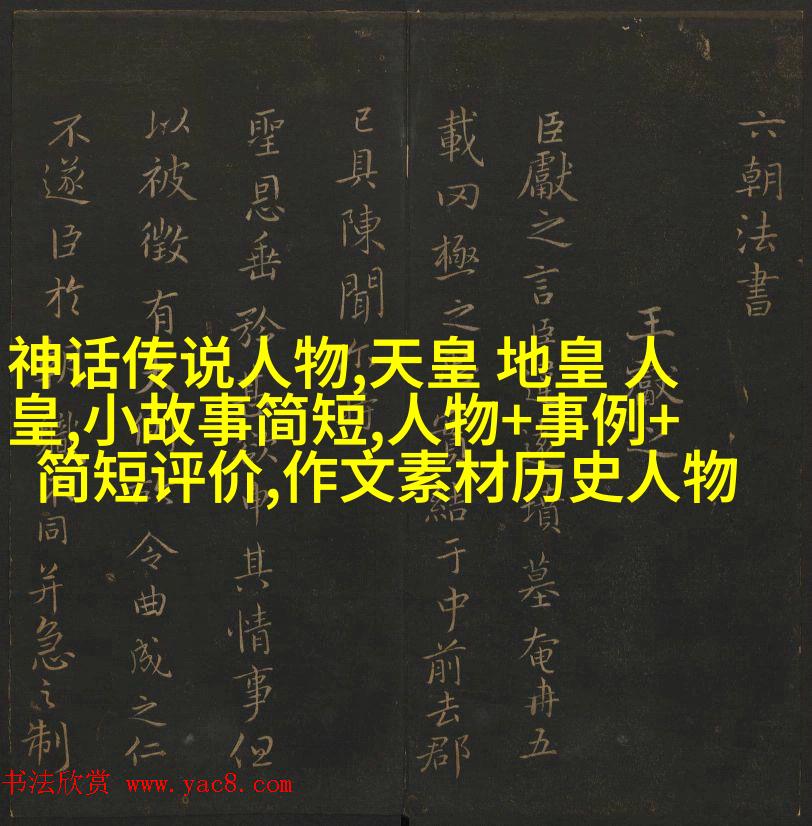 六朝法書
王獻之
臣獻之言臣墳墓奄冉五
載罔極之結于中前去郡
已具陳聞
聖恩垂矜其情事但
以被徵有令曲成之仁
不遂臣於同并急之制
神话传说人物,天皇 地皇 人
皇,小故事简短,人物+事例+
简短评价,作文素材历史人物
书法欣赏 www.yac8.com